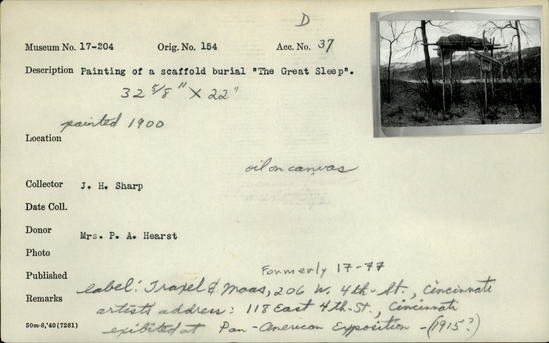 D
Museum No. 17-204 Orig. No. 154 Acc. No. 37
Description Painting of a scaffold burial "The Great Sleep".
32 5/8" X 22"
painted 1900
Location
oil on canvas
Collector J. H. Sharp
Date Coll.
Donor Mrs. P. A. Hearst
Photo
Formerly 17-77
Published
label: Traxel & Maas, 206 W. 4th St., Cincinnati
Remarks artists address: 118 East 4th St., Cincinnati
exibited at Pan-American Exposition - (1915?)
50m-8,'40(7281)